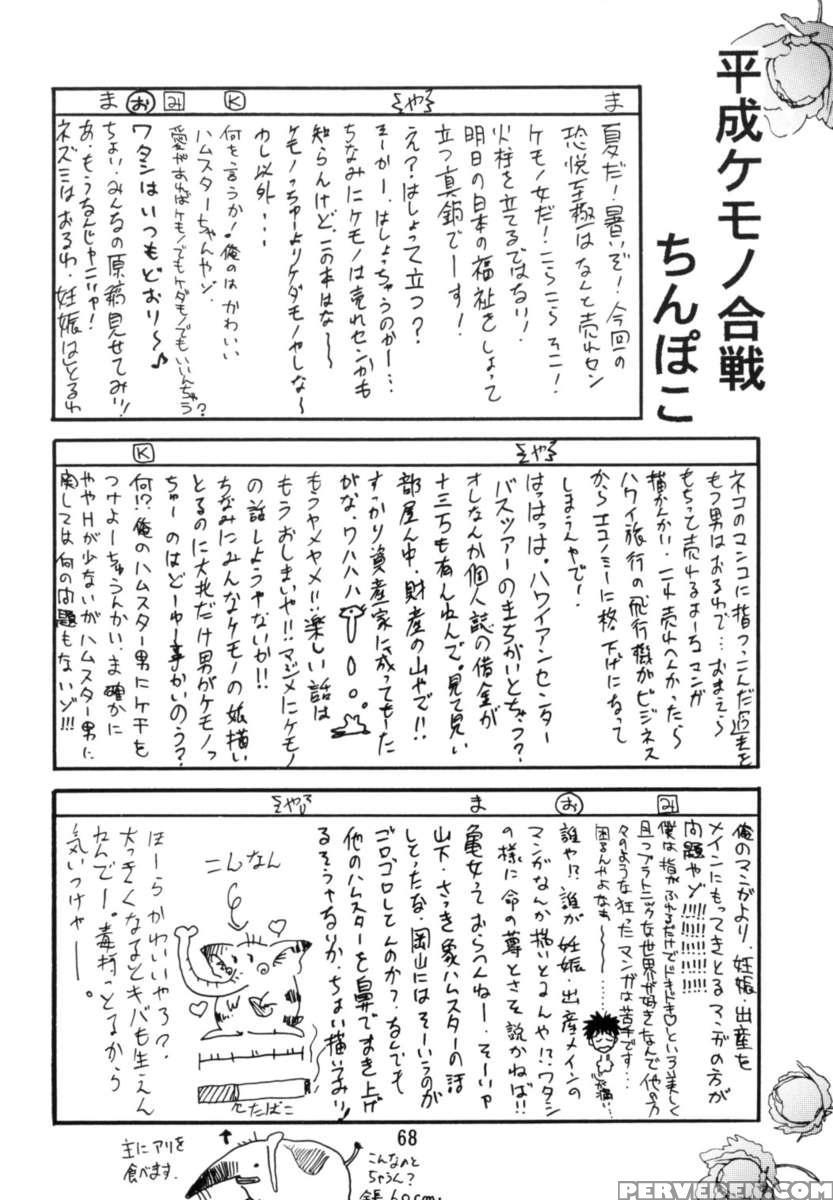 平成ケモノ合戦
ちんぽこ
ま
夏だ!暑いぞ!今回の
恐悦至極はなんと売れセン
ケモノ女だ!こらこらそこ!
火柱を立てるではない!
明日の日本の福祉をしょって
立つ真鍋でーす!
そやろ
え?はしょって立つ?
そーかー、はしょっちゃうのかー…
ちなみにケモノは売れセンかも
知らんけど、この本はな〜〜
ケモノっちゅーよりケダモノやしな〜
わし以外・・・
K
何を言うか!俺のはかわいい
ハムスターちゃんやゾ、
み
愛があればケモノでもケダモノでもいいんちゃう?
お
ワタシはいつもどおり〜♪
ま
ちょい、みんなの原稿見せてみい!
あ、もうなんじゃこりゃ!
ネズミはおるわ、妊娠はしとるわ
ネコのマンコに指つっこんだ過去を
もつ男はおるわで…おまえら
もちっと売れるよーなマンガ
描かんかい、これ売れへんかったら
ハワイ旅行の飛行機がビジネス
からエコノミーに格下げになって
しまうんやでー!
そやろ
はっはっは。ハワイアンセンター
バスツアーのまちがいとちゃう?
オレなんか個人誌の借金が
十三万も有んねんで。見て見い
部屋ん中、財産の山やで!!
すっかり資産家に成ってもーた
がな、ワハハハ
もうヤメヤメ!!楽しい話は
もうおしまいや!!マジメにケモノ
の話しようやないか!!
ちなみにみんなケモノの娘描い
とるのに大北だけ男がケモノっ
ちゅーのはどーゆー事かいのう?
K
何!?俺のハムスター男にケチを
つけよーちゅうんかい、ま確かに
ややHが少ないがハムスター男に
関しては何の問題もないゾ!!!
俺のマンガより、妊娠、出産を
メインにもってきとるマンガの方が
問題やゾ!!!!!!!!!!
み
僕は指がふれるだけでドキドキ♡という美しく
且つプラトニックな世界が好きなんで他の方
々のような狂ったマンガは苦手です…
困るんやよなぁ〜……
お
誰や!?誰が妊娠・出産メインの
マンガなんか描いとるんや!?ワタシ
の様に命の尊とさを説かねば!!
ま
亀女っておらへんねー、そーいや
山下、さっき象ハムスターの話
しとったな、岡山にはそーいうのが
ゴロゴロしてんのか?なんでも
他のハムスターを鼻でまき上げ
るそうやないか、ちょい描いてみい!
そやろ
こんなん
ほーらかわいいやろ?
大っきくなるとキバも生えん
ねんでー。毒持っとるから
気いつけやー。
たばこ
主にアリを
食べます.
こんなのと
ちゃうん?
68
PERVEDEN.COM